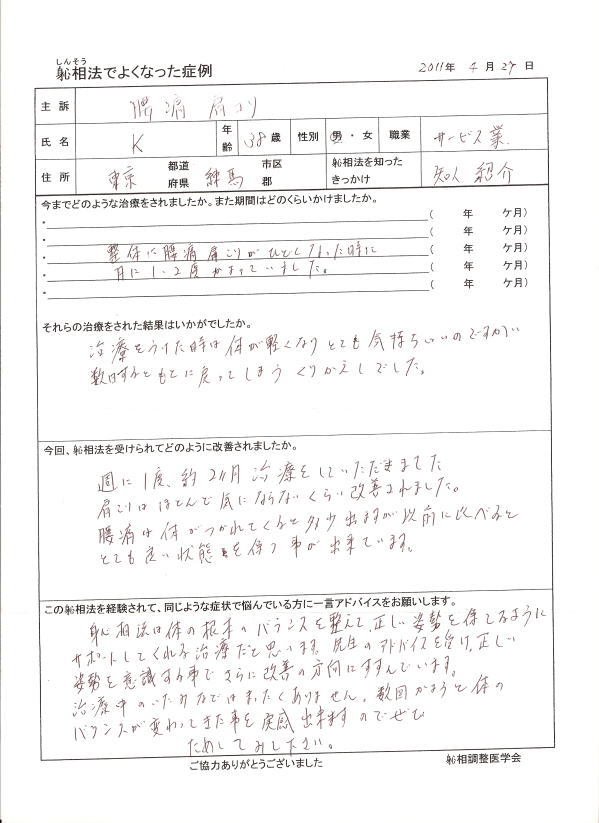 しんそう
躰相法でよくなった症例
2011年 4月27日
主訴 腰痛 肩コリ
氏名 K 年齢 38歳 性別 男・女 職業 サービス業
住所 東京 都道府県 練馬 市区郡 躰相法を知ったきっかけ 知人 紹介
今までどのような治療をされましたか。また期間はどのくらいかけましたか。
・ ( 年 ケ月)
・ ( 年 ケ月)
・ 整体に腰痛 肩こりがひどくなった時に ( 年 ケ月)
・ 月に1、2度かよっていました。 ( 年 ケ月)
・ ( 年 ケ月)
それらの治療をされた結果はいかがでしたか。
治療をうけた時は体が軽くなりとても気持ちいいのですが
数日するともとに戻ってしまう くりかえしでした。
今回、躰相法を受けられてどのように改善されましたか。
週に1度、約2ヶ月 治療をしていただきました
肩こりはほとんど気にならないくらい改善されました。
腰痛は体がつかれてくると多少出ますが以前に比べると
とても良い状態を保つ事が出来ています。
この躰相法を経験されて、同じような症状で悩んでいる方に一言アドバイスをお願いします。
躰相法は体の根本のバランスを整えて、正しい姿勢を保てるように
サポートしてくれる治療だと思います。先生のアドバイスを受け、正しい
姿勢を意識する事でさらに改善の方向にすすんでいます。
治療中のいたみなどはまったくありません。数回かようと体の
バランスが変わってきた事を実感出来ますのでぜひ
ためしてみて下さい。
ご協力ありがとうございました
躰相調整医学会